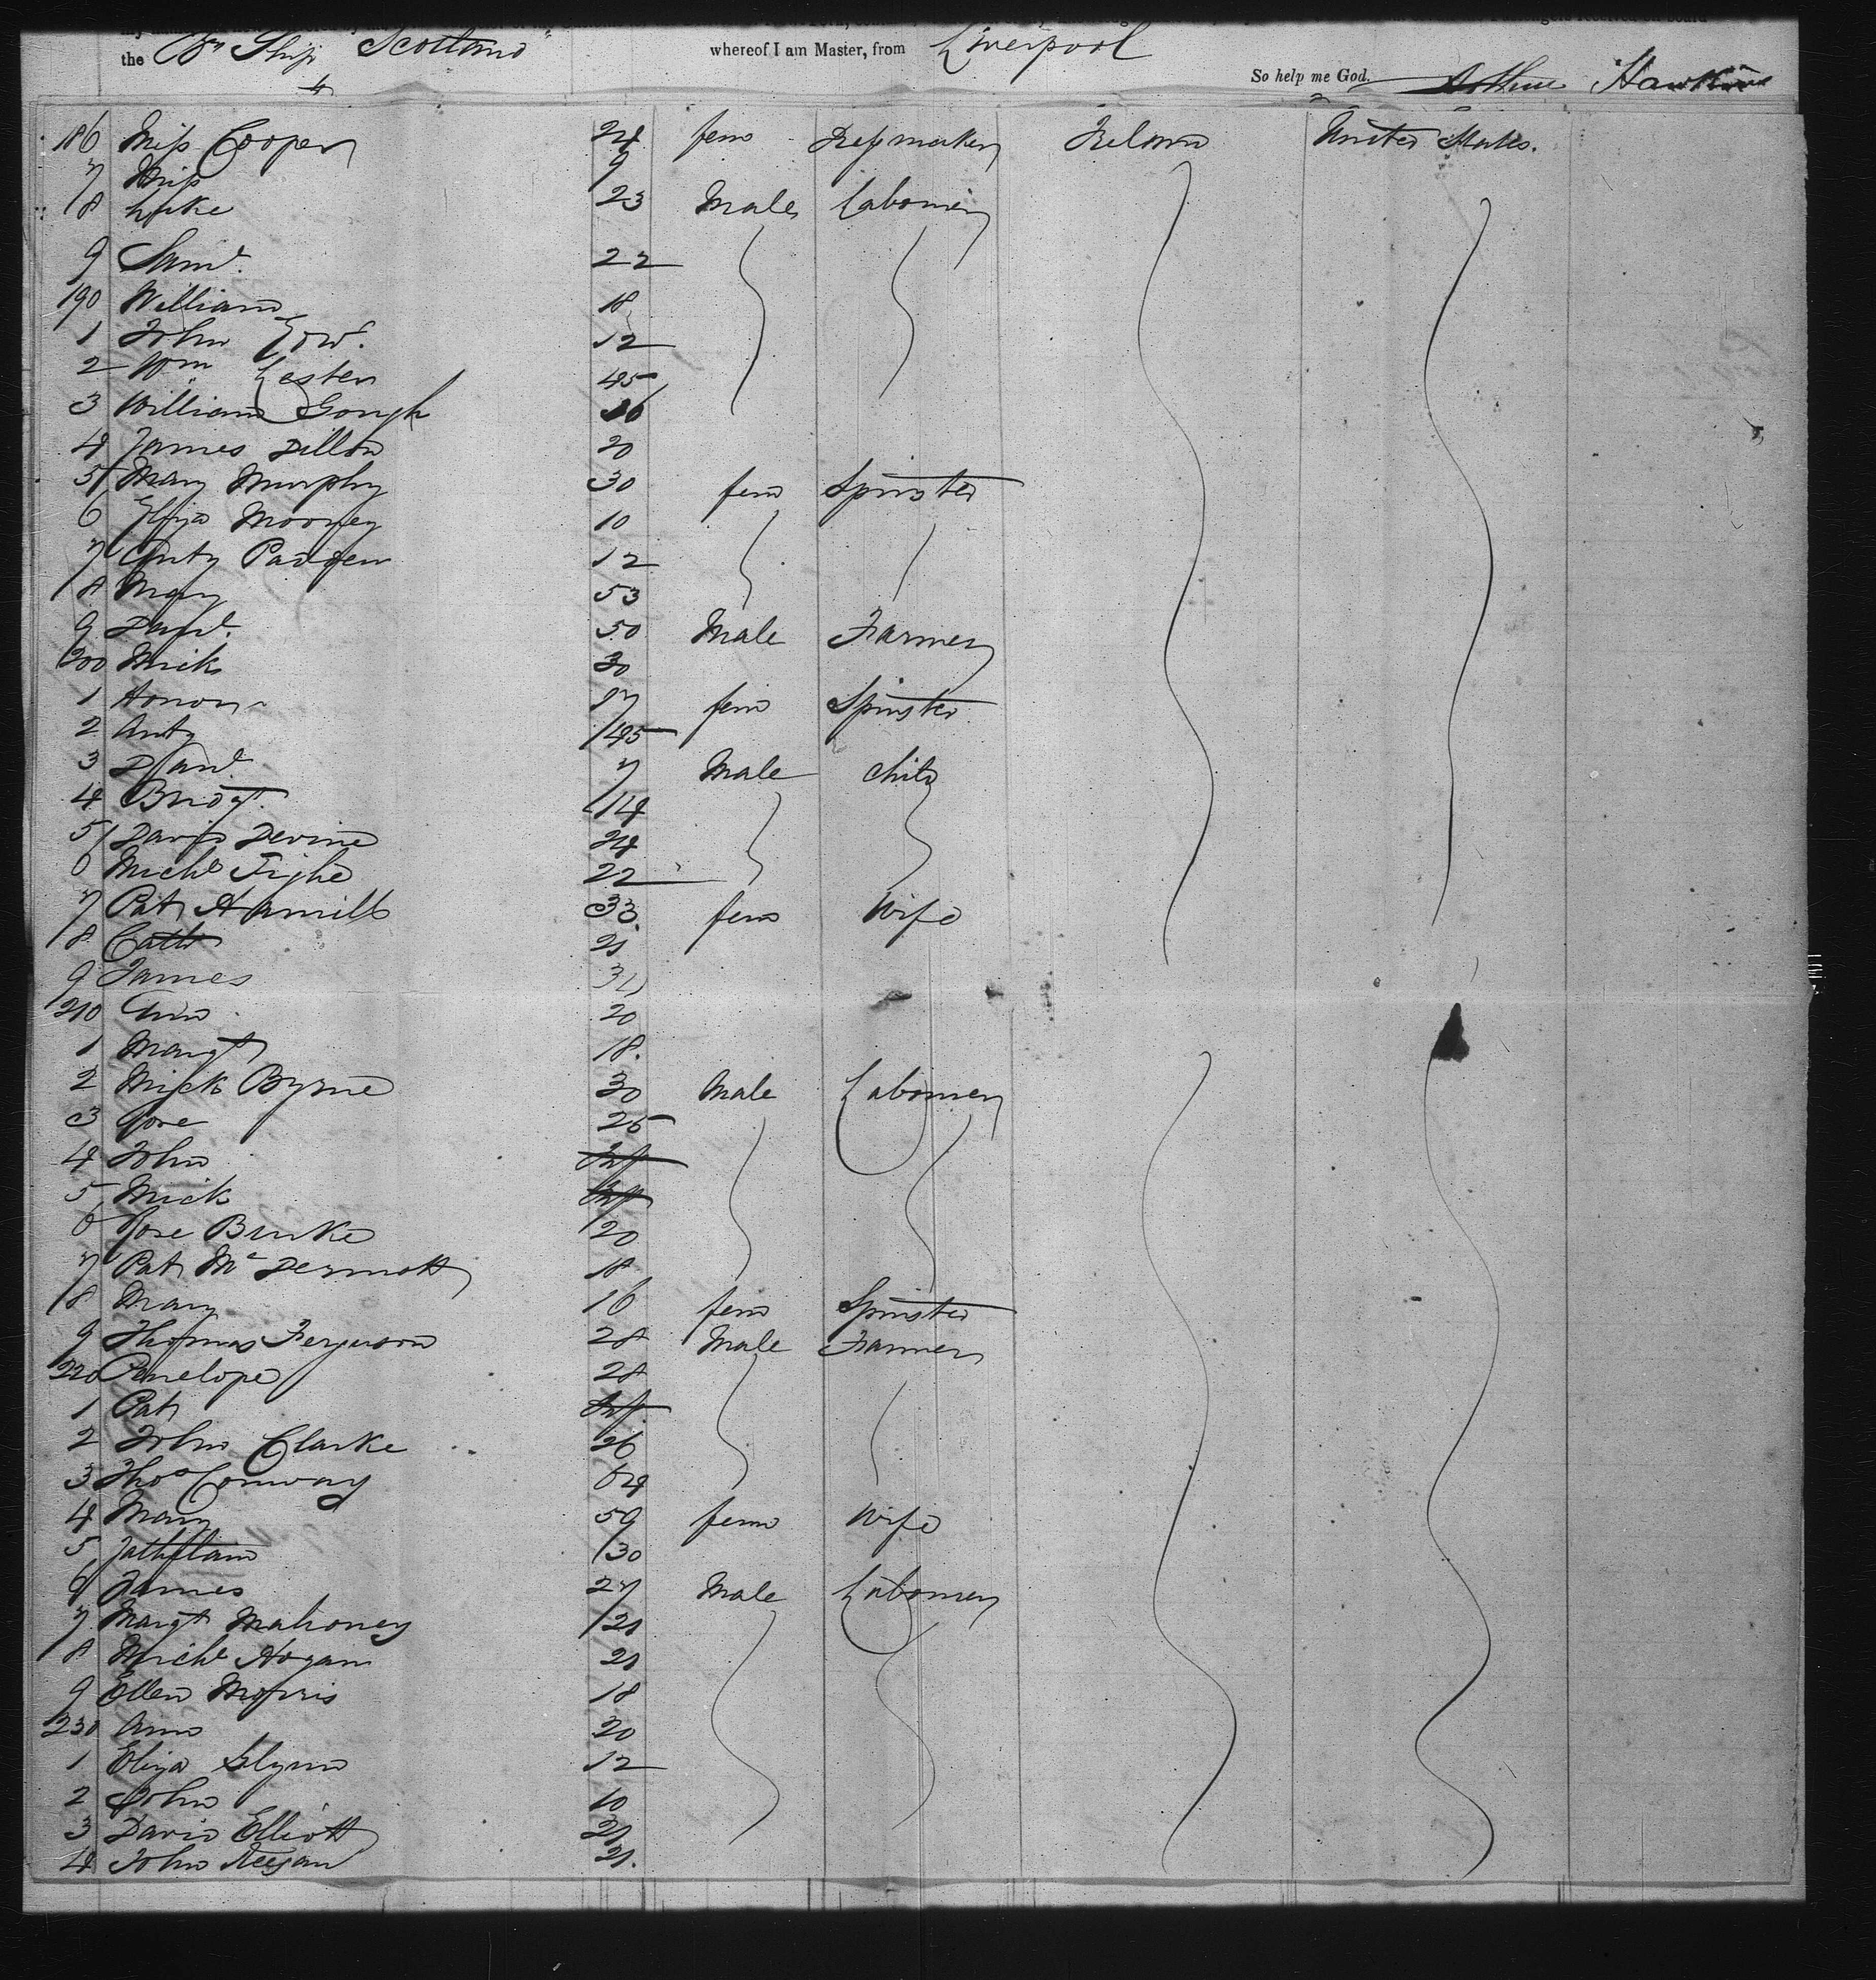 the Br Ship "Scotland" whereof I am Master, from Liverpool
So help me God. Arthur Hawkins
4
186 Miss Cooper 24 fem Dressmaker Ireland United States.
7 Miss 9
8 Luke 23 Male Labourer
9 Saml. 22
190 William 18
1 John Edwd. 12
2 Wm Lester 45
3 William Gough 36
4 James Dillon 20
5 Mary Murphy 30 fem Spinster
6 Eliza Mooney 10
7 Anty Padgen 12
8 Mary 53
9 Danl. 50 Male Farmer
200 Mick 30
1 Honor 17 fem Spinster
2 Anty 45
3 Danl. 7 Male Child
4 Bridgt. 14
5 David Devine 24
6 Michl Tighe 22
7 Pat Hamill 33 fem Wife
8 Cath 21
9 James
210 Ann 20
1 Margt 18.
2 Mick Byrne 30 Male Labourer
3 Rose 25
4 John Inf
5 Mick Inf
6 Rose Burke 20
7 Pat McDermott 18
8 Mary 16 fem Spinster
9 Thomas Ferguson 28 Male Farmer
220 Penelope 28
1 Pat Inf
2 John Clarke 26
3 Thos Conway 64
4 Mary 59 fem Wife
5 30
6 James 27 Male Labourer
7 Margt Mahoney 21
8 Michl Hogan 21
9 Ellen Morris 18
230 Ann 20
1 Eliza Glynn 12
2 John 10
3 David Elliott 21
4 John Keegan 21.